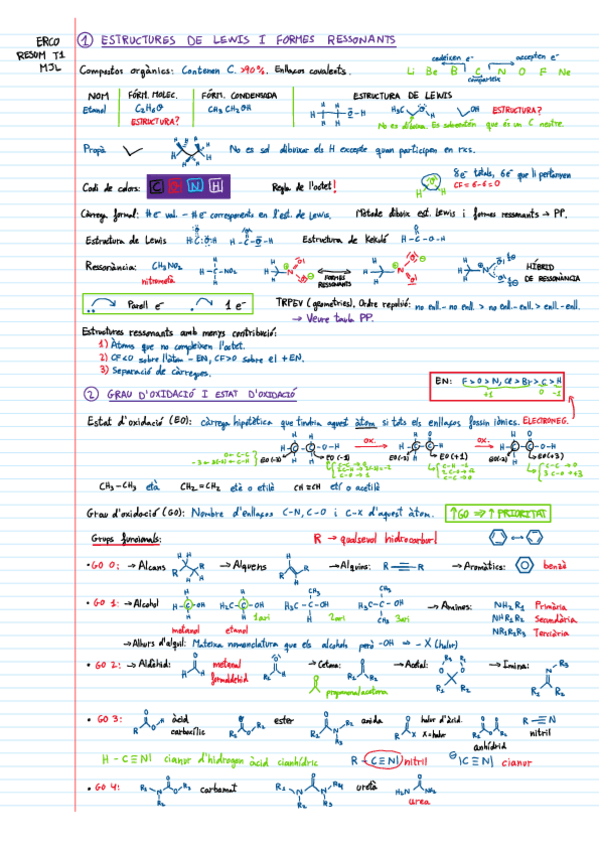 ERCO
RESUM T1
MJL
1 ESTRUCTURES DE LEWIS I FORMES RESSONANTS
Compostos orgànics: Contenen C. >90%. Enllaços covalents.
cedeixen e⁻ accepten e⁻
Li Be B C N O F Ne
comparteix
NOM FÓRM. MOLEC. FÓRM. CONDENSADA ESTRUCTURA DE LEWIS
Etanol C₂H₆O CH₃CH₂OH H₃C OH ESTRUCTURA?
ESTRUCTURA?
No es dibuixa. Es sobreentén que és un C neutre.
Propà No es sol dibuixar els H excepte quan participen en rxs.
Codi de colors: C O N H Regla de l'octet! 8e⁻ totals, 6e⁻ que li pertanyen
CF = 6-6=0
Càrrega formal: #e⁻ val. - #e⁻ corresponents en l'est. de Lewis. Mètode dibuix est. Lewis i formes ressonants → PP.
Estructura de Lewis Estructura de Kekulé H-C-O-H
Ressonància: CH₃NO₂ H-C-NO₂ FORMES RESSONANTS HÍBRID DE RESSONÀNCIA
nitrometà
Parell e⁻ 1 e⁻ TRPEV (geometries). Ordre repulsió: no enll.- no enll. > no enll.-enll. > enll.-enll.
→ Veure taula PP.
Estructures ressonants amb menys contribució:
1) Àtoms que no compleixen l'octet.
2) CF<0 sobre l'àtom -EN, CF>0 sobre el +EN.
3) Separació de càrregues.
EN: F > O > N, Cl > Br > C > H
+1 0 -1
2 GRAU D'OXIDACIÓ I ESTAT D'OXIDACIÓ
Estat d'oxidació (EO): càrrega hipotètica que tindria aquest àtom si tots els enllaços fossin iònics. ELECTRONEG.
ox. ox.
EO(-3) EO(-1) EO(-3) EO(+1) EO(-3) EO(+3)
CH₃-CH₃ età CH₂=CH₂ etè o etilè CH≡CH etí o acetilè
Grau d'oxidació (GO): Nombre d'enllaços C-N, C-O i C-X d'aquest àtom. ↑GO => ↑ PRIORITAT
Grups funcionals: R → qualsevol hidrocarbur!
• GO 0: → Alcans → Alquens → Alquins: R-≡-R → Aromàtics: benzè
• GO 1: → Alcohol 1ari 2ari 3ari → Amines: NH₂R₁ Primària
NHR₁R₂ Secundària
metanol etanol NR₁R₂R₃ Terciària
→ Alhurs d'alquil: Mateixa nomenclatura que els alcohols però -OH → -X (halur)
• GO 2: → Aldehid: metanal → Cetona: → Acetal: → Imina:
formaldehid
propanona/acetona
• GO 3: àcid carboxílic ester amida halur d'àcid. X=halur anhídrid R-≡N nitril
H-C≡N| cianur d'hidrogen àcid cianhídric R-C≡N| nitril ⊖|C≡N| cianur
• GO 4: carbamat uretà urea